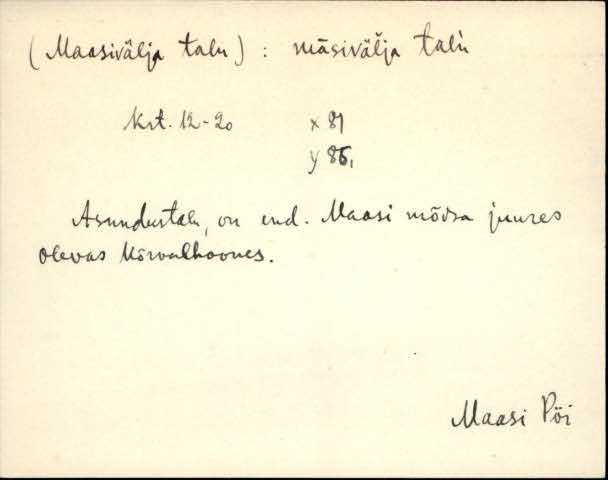 (Maasivälja talu) : māsivälja talù
krt. 12-20 x 81
y 85,
Asundustalu, on end. Maasi mõisa juures
olevas kõrvalhoones.
Maasi Pöi